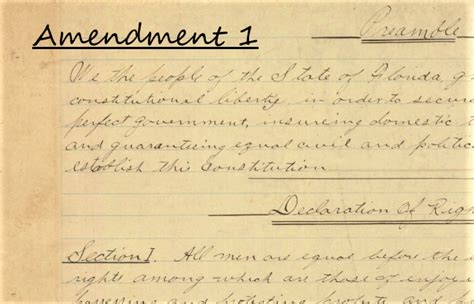 Preamble
Amendment 1
We the people of the State of Florida, g
constitutional liberty, in order to secure
perfect government, insuring domestic t
and guaranteeing equal civil and politic
establish this Constitution
Declaration Of Righ
Section I. All men are equal before the
rights among which are those of enjoy
protecting